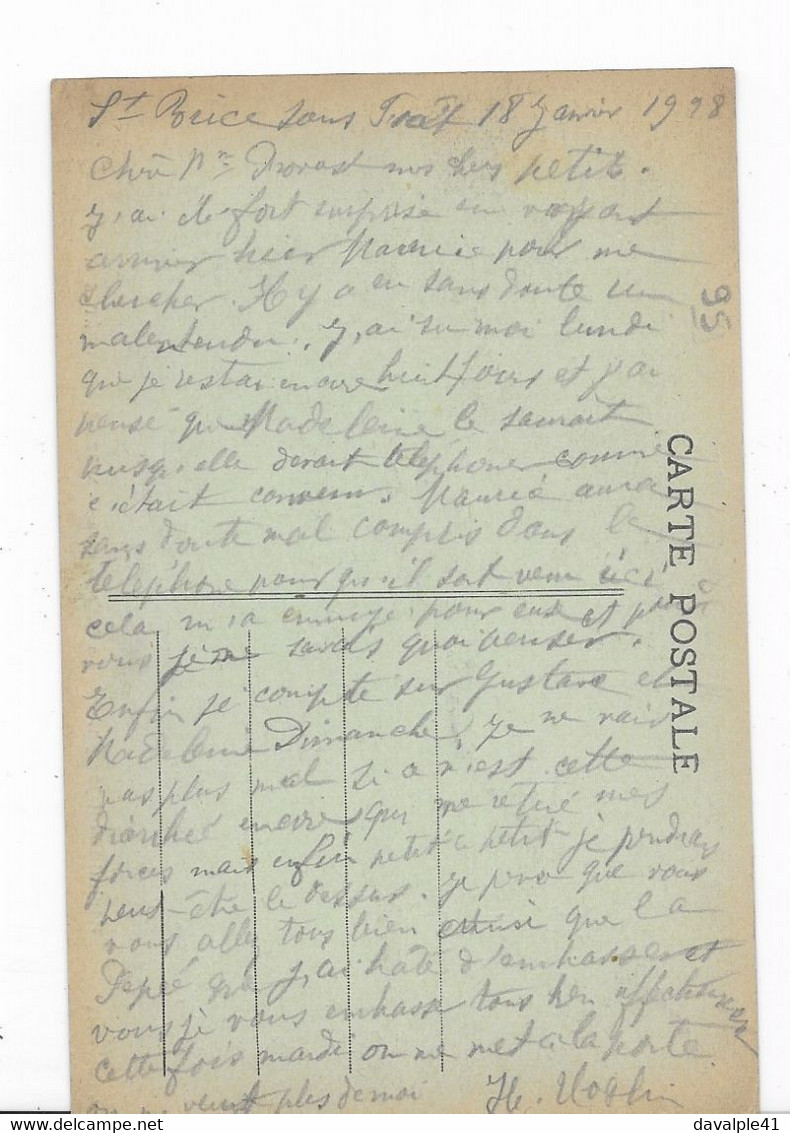 St Brice sous Forêt 18 Janvier 1928
Chère Mme Provost mes chers petits.
J'ai été fort surprise en voyant
arriver hier Maurice pour me
chercher. Il y a eu sans doute un
malentendu. J'ai su moi lundi
que je restai encore huit jours et j'ai
pensé que Madeleine le saurait
puisqu'elle devait téléphoner comme
c'était convenu. Maurice aura
sans doute mal compris dans le
téléphone pour qu'il soit venu ici,
cela m'a ennuyé pour eux et pour
vous je ne savais quoi penser.
Enfin je compte sur Gustave et
Madeleine Dimanche, je ne vais
pas plus mal si ce n'est cette
diarrhée encore qui me retire mes
forces mais enfin petit à petit je prendrai
peut-être le dessus. Je pense que vous
vous allez tous bien ainsi que la
Pépée que j'ai hâte d'embrasser et
vous je vous embrasse tous bien affectueusement
cette fois mardi on me met à la porte
on ne veut plus de moi
H.
95
CARTE POSTALE
davalple41